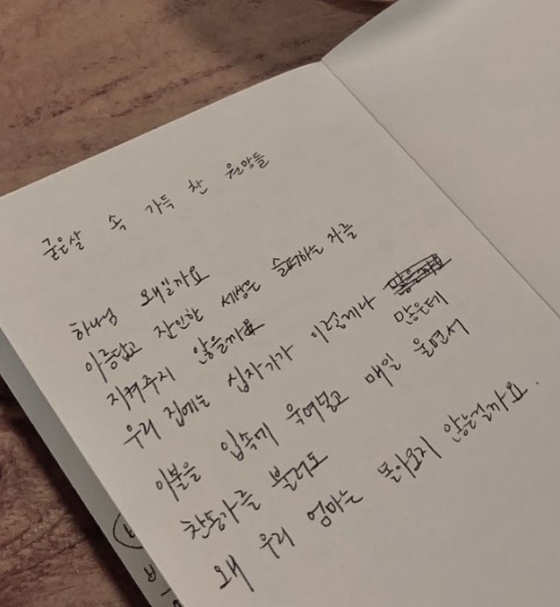 굳은살 속 가득 찬 원망들
하나님 왜일까요
아름답고 잔인한 세상은 슬퍼하는 자를
지켜주지 않을까요
우리 집에는 십자가가 이렇게나
많은데
이불을 입속에 욱여넣고 매일 울면서
찬송가를 불러도
왜 우리 엄마는 돌아오지 않는걸까요.